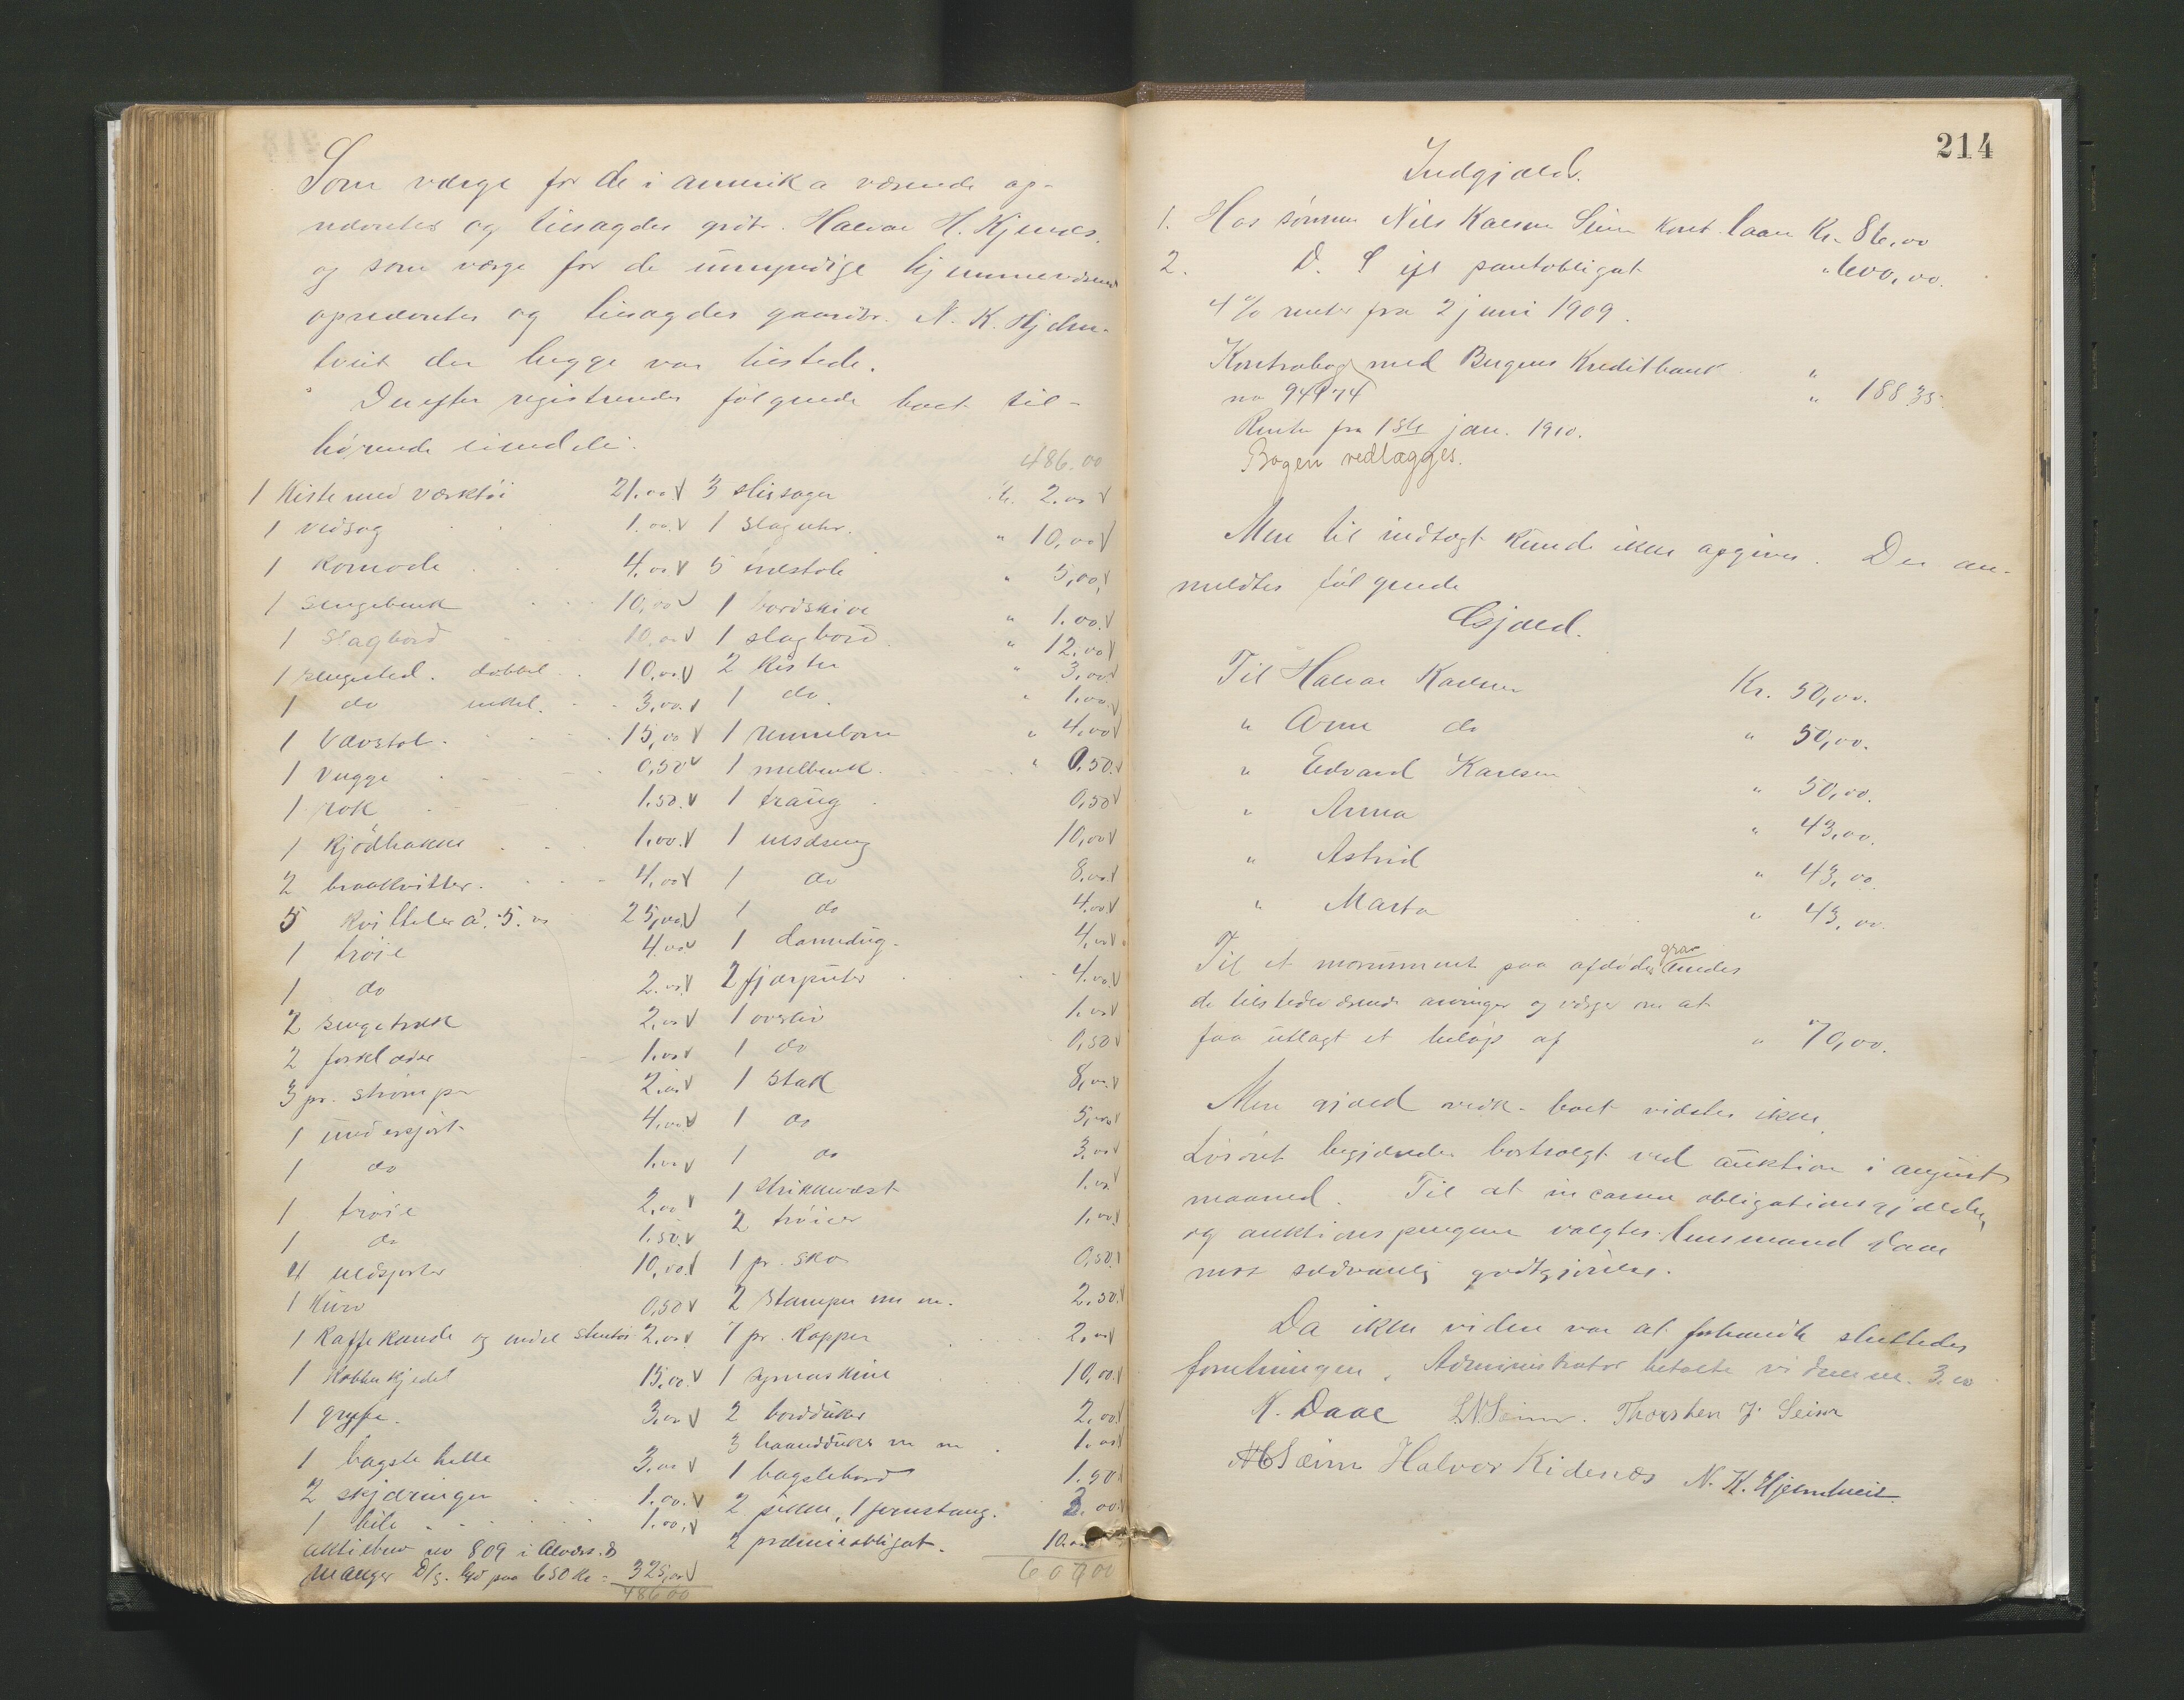 Som værge for de i amerika værende op-
nævntes og tilsagdes grdbr. Halvor H. Kjenes.
og som værge for de umyndige hjemmeværende
opnævntes og tilsagdes gaardbr. N. K. Hjelm-
tveit der begge var tilstede.
Derefter registrerdes følgende boet til-
hørende eiendele:
486.00
1 Kiste med værktøi 21.00 V
1 vedsag 1.00. V
1 Komode 4.00 V
1 sengebenk 10,00 V
1 Slagbord 10.00 V
1 sengested. dobbel 10,00 V
1 do enkel. 3,00. V
1 Vævstol. 15,00 V
1 Vugge 0,50 V
1 rok 1.50. V
1 Kjødhakke 1.00. V
2 braakvitler. 4,00 V
5 kvitteler a. 5. 00 25,00. V
1 trøie 4.00 V
1 do 2.00. V
2 sengetræk 2,00 V
2 forklæder 1.00 V
3 pr. strømper 2.00 V
1 underskjørt 4.00 V
1 do 1.00 V
1 trøie 2,00 V
1 do 1.50. V
4 uldskjorter 10,00. V
1 Kurv 0,50 V
1 Kaffekande og endel stentøi 2.00 V
1 Kobberkjedel 15.00. V
1 gryte. 3,00 V
1 bagstehelle 3,00 V
2 skjæringer 1.00. V
1 bile 1.00, V
aktiebrev no 809 i Alvers. &
Manger D/s. lyd paa 650 Kr = 325,00 V
486 00
3 stiksager Kr. 2.00 V
1 slaguhr. " 10,00 V
5 træstole " 5,00, V
1 bordskive " 1.00. V
1 slagbord. " 12.00 V
2 kister " 3,00 V
1 do. " 1.00. V
1 rennebom " 4,00 V
1 melbenk. " 0,50. V
1 traug 0,50 V
1 10,00 V
1 do 8,00 V
1 do 4.00 V
1 4,00 V
2 fjærputer 4.00 V
1 overliv 1.00 V
1 do 0,50 V
1 Stak 8,00. V
1 do 5,00 V
1 do 3.00 V
1 strikkevæst 1.00. V
2 trøier 1,00. V
1 pr. sko 0,50. V
2 Stamper m m. 2.50. V
7 pr. Kopper 2.00 V
1 symaskine 10,00. V
2 bordduker 2,00. V
3 haandduker m m 1.00. V
1 bagstebord 1.50 V
2 1 jernstang. 3.00 V
2 præmieobligat. 10.00
607 00
214
Indgjæld.
1. Hos sønnen Nils Karlsen Seim kont. laan Kr. 86,00
2. D. S ifl pantobligat " 600,00.
4 % renter fra 2 juni 1909.
Kontrabog med Bergens Kreditbank "
no 94974 " 188 35.
Rente fra 1ste jan. 1910.
Bogen vedlægges.
Mere til indtægt kunde ikke opgives. Der an-
meldtes følgende
Gjæld.
Til Halvor Karlsen Kr. 50,00.
" Arne do " 50,00.
" Edvard Karlsen " 50,00.
" Anna " 43,00.
" Astrid " 43,00.
" Marta " 43,00.
Til et monument paa afdødes grav
de tilstedeværende arvinger og værger om at
faa utlagt et beløp af " 70,00.
Mere gjæld vedk. boet vidstes ikke.
Løsøret begjærdes bortsolgt ved auktion i august
maaned. Til at incassere obligationsgjælden
og auktionspengene valgtes lensmand Daae
mot sedvanlig godtgjørelse.
Da ikke videre var at forhandle sluttedes
forretningen. Administrator betalte vidnerne. 3.00
K. Daae L N Seim. Thorsten J. Seim
Seim Halvor Kidenes N. K. Hjelmtveit.